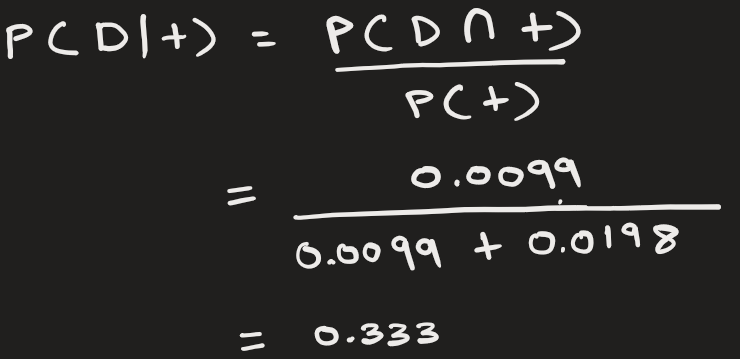 P(D|+) = P(D ∩ +)
P(+)
= 0.0099
0.0099 + 0.0198
= 0.333